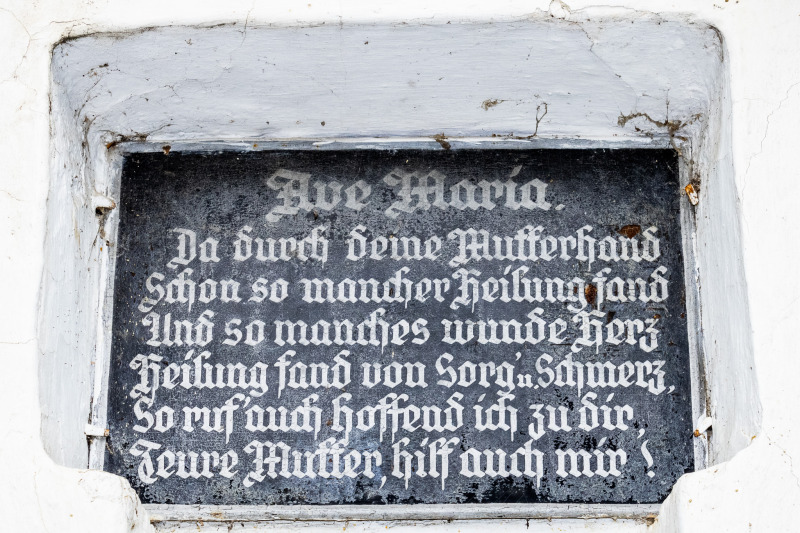 Ave Maria.
Da durch deine Mutterhand
Schon so mancher Heilung fand
Und so manches wunde Herz
Heilung fand von Sorg' u. Schmerz,
So ruf' auch hoffend ich zu dir,
Teure Mutter, hilf auch mir!